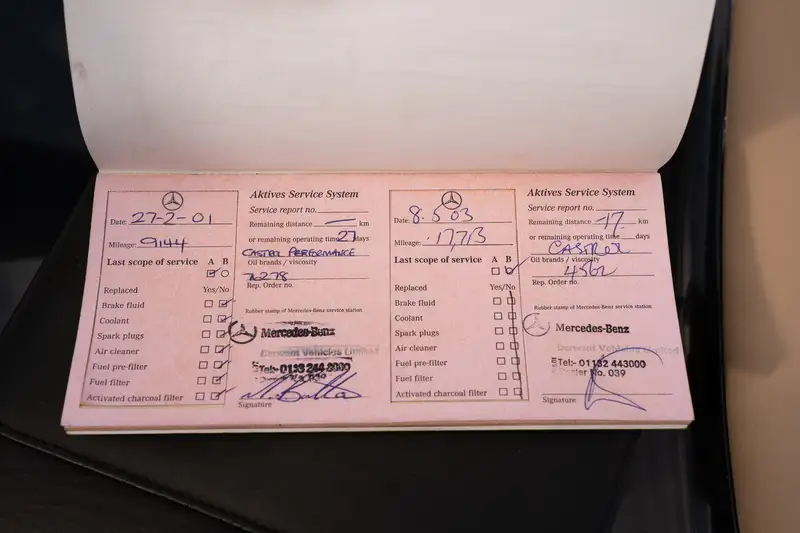 Date: 27-2-01
Mileage: 9144
Last scope of service A B
Replaced Yes/No
Brake fluid
Coolant
Spark plugs
Air cleaner
Fuel pre-filter
Fuel filter
Activated charcoal filter
Aktives Service System
Service report no.
Remaining distance — km
or remaining operating time 27 days
CASTROL PERFORMANCE
Oil brands / viscosity
76278
Rep. Order no.
Rubber stamp of Mercedes-Benz service station
Mercedes-Benz
Derwent Vehicles Limited
Tel:- 0133 244 3000
Signature
Date: 8.5 03
Mileage: 17,713
Last scope of service A B
Replaced Yes/No
Brake fluid
Coolant
Spark plugs
Air cleaner
Fuel pre-filter
Fuel filter
Activated charcoal filter
Aktives Service System
Service report no.
Remaining distance -17 km
or remaining operating time days
CASTROL
Oil brands / viscosity
Rep. Order no.
Rubber stamp of Mercedes-Benz service station
Mercedes-Benz
Derwent Vehicles Limited
Tel:- 01132 443000
Dealer No. 039
Signature